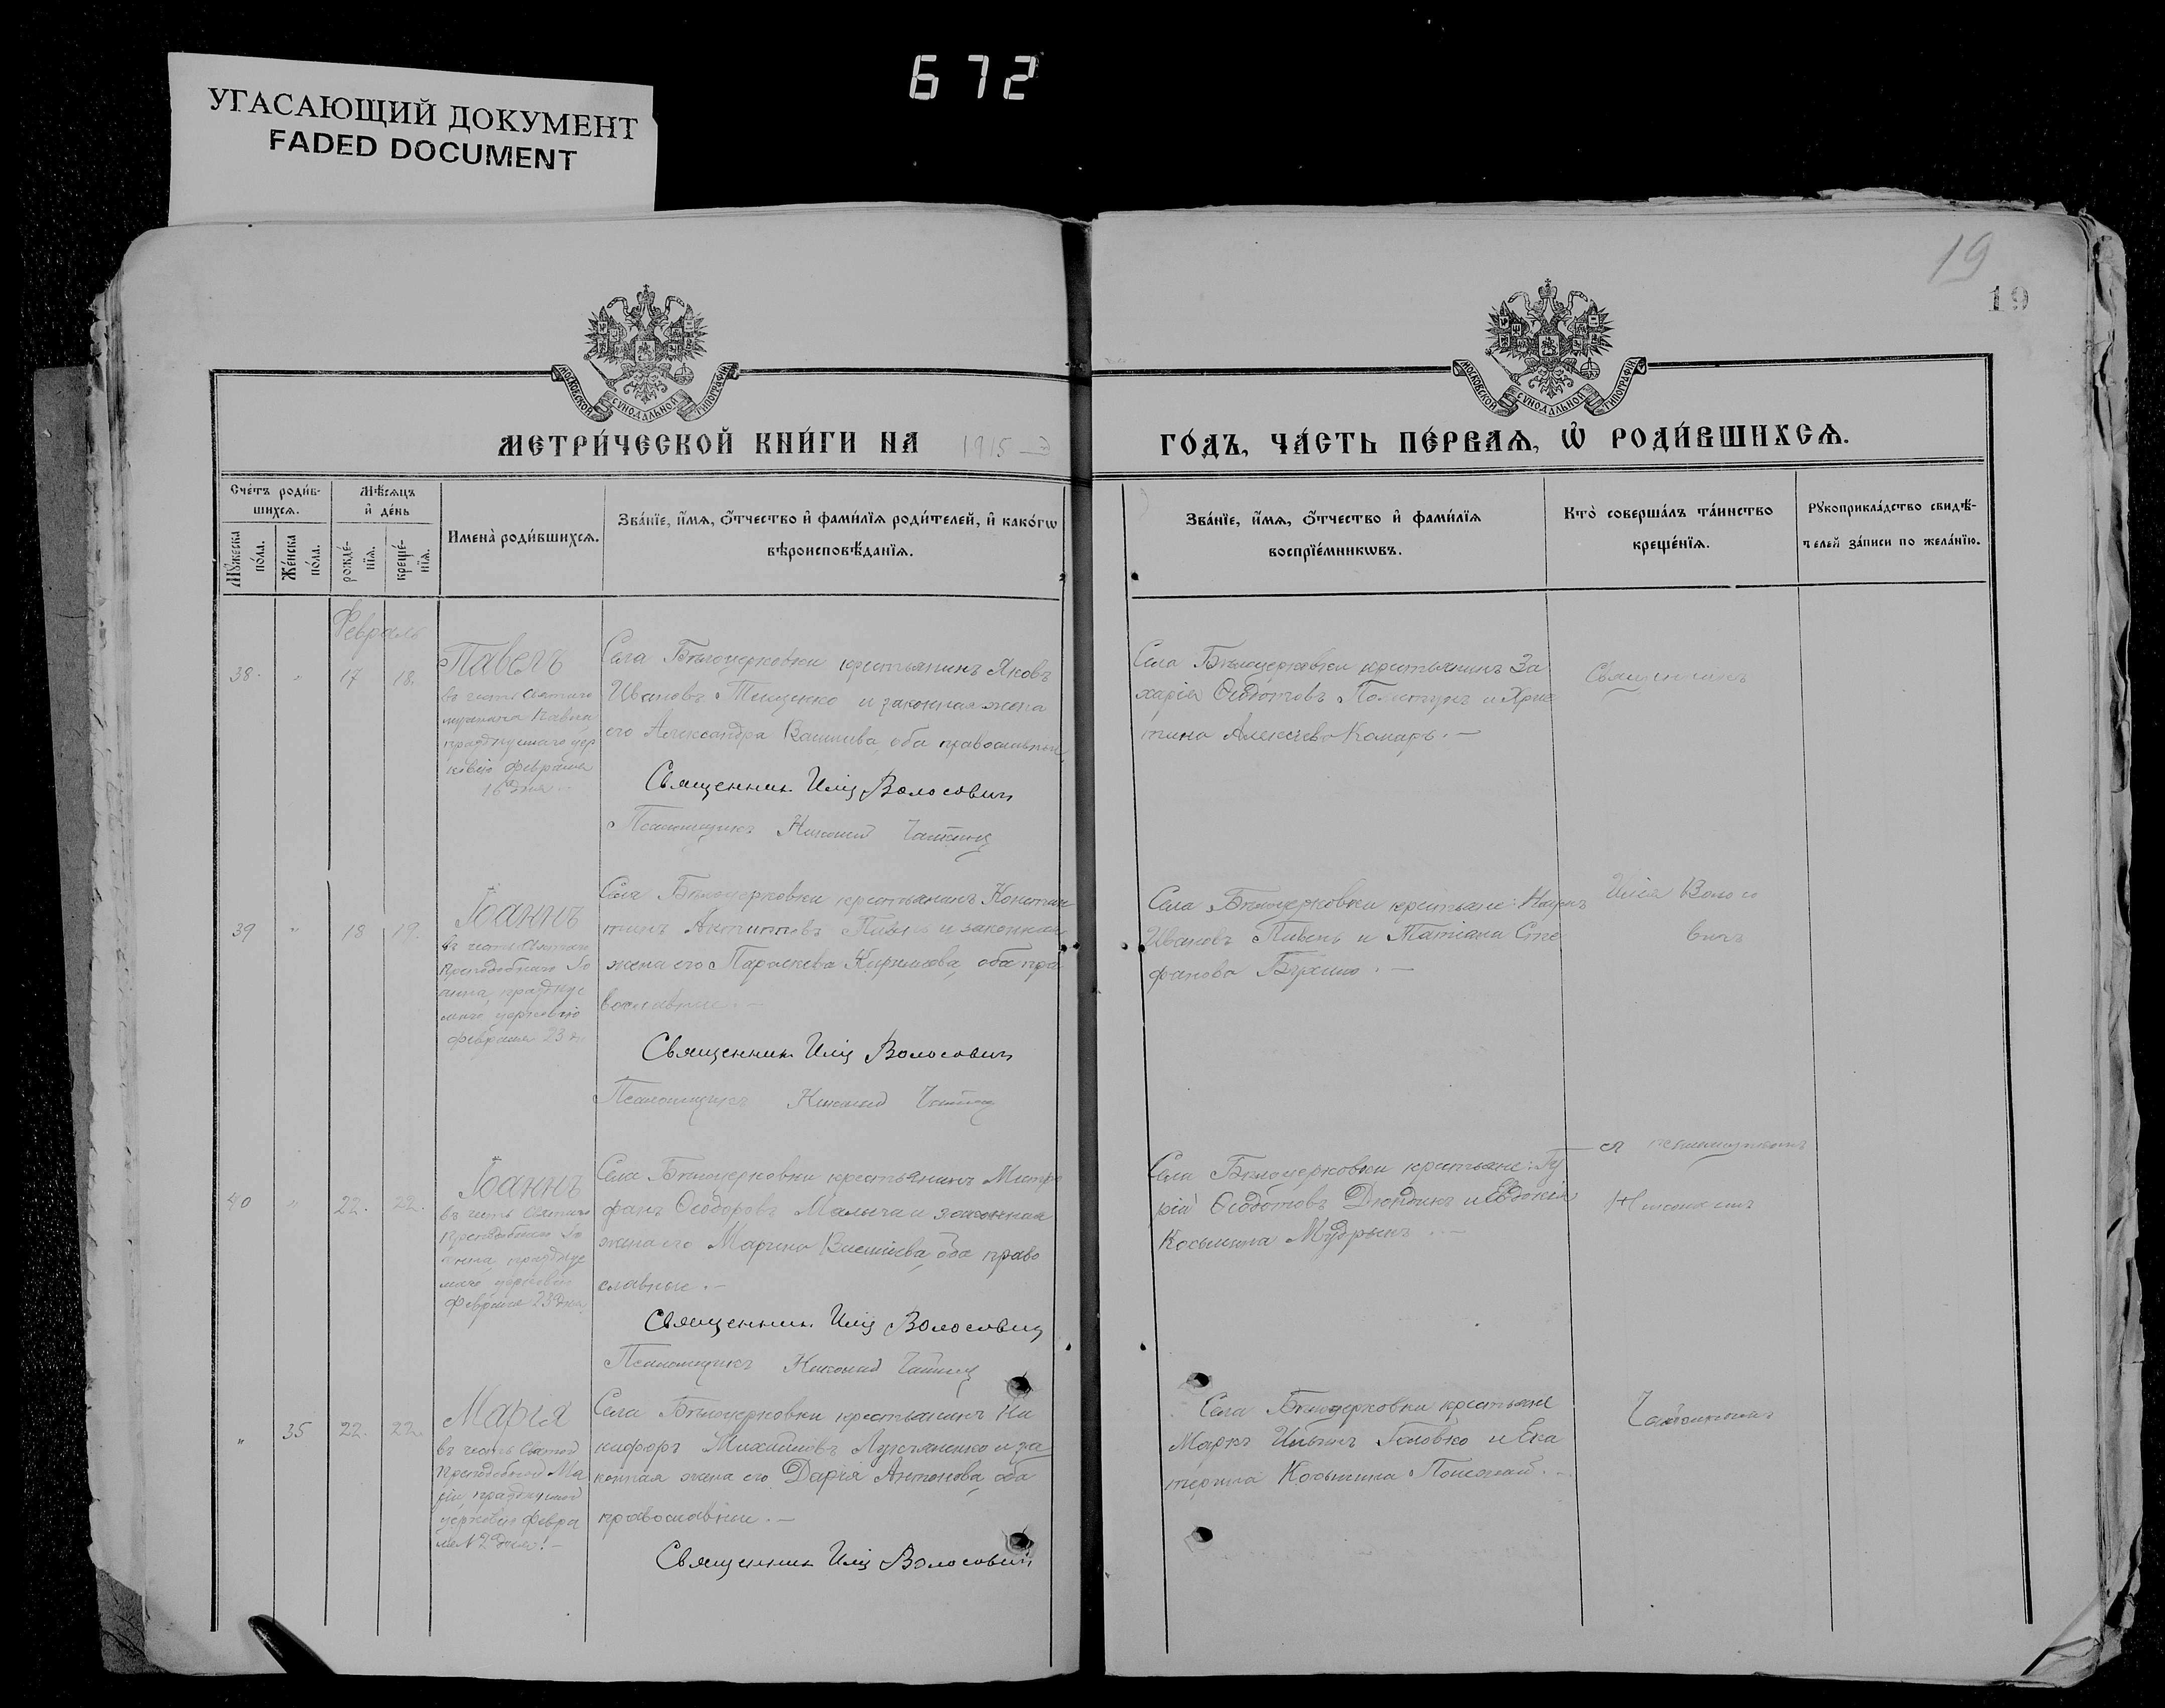 672
УГАСАЮЩИЙ ДОКУМЕНТ
FADED DOCUMENT
19
19
МОСКОВСКОЙ СѴНОДАЛЬНОЙ ТИПОГРАФІИ
МОСКОВСКОЙ СѴНОДАЛЬНОЙ ТИПОГРАФІИ
МЕТРИ́ЧЕСКОЙ КНИ́ГИ НА 1915
ГО́ДЪ, ЧА́СТЬ ПЕ́РВАѦ, Ѽ РОДИ́ВШИХСѦ.
Сче́тъ роди́в-
шихсѧ.
Мꙋ́жеска по́ла.
Же́нска по́ла.
Мѣ́сѧцъ
и҆ де́нь
рожде́-
нїѧ.
креще́-
нїѧ.
Имена̀ роди́вшихсѧ.
Зва́нїе, и҆́мѧ, ѻ҆́тчество и҆ фами́лїѧ роди́телей, и҆ како́гѡ
вѣроисповѣ́данїѧ.
Зва́нїе, и҆́мѧ, ѻ҆́тчество и҆ фами́лїѧ
воспрїе́мникѡвъ.
Кто̀ соверша́лъ та́инство
креще́нїѧ.
Рꙋкоприкла́дство свидѣ́-
телей за́писи по жела́нїю.
Февраль
38. " 17 18.
Павелъ
въ честь Святаго
мученика Павла
празднуемаго цер
ковію Февраля
16 дня
Села Бѣлоцерковки крестьянинъ Яковъ
Ивановъ Тищенко и законная жена
его Александра, оба православные
Священник Илія Волосович
Псаломщикъ
Села Бѣлоцерковки крестьянинъ За
харія Ѳеодотовъ и Хрис
тина Алексѣева Комаръ. —
Священникъ
39 " 18 19.
Іоаннъ
въ честь Святаго
Преподобнаго Іо
анна, праздуе
маго церковію
Февраля 23 д.
Села Бѣлоцерковки крестьянинъ Констан
тинъ Пивень и законная
жена его Параскева Кириллова, оба пра
вославные. —
Священник Илія Волосович
Псаломщикъ
Села Бѣлоцерковки крестьяне:
Ивановъ Пивень и Татіана Сте
фанова
Илія Волосо
вичъ
40 " 22. 22.
Іоаннъ
въ честь Святаго
Преподобнаго Іо
анна, праздуе
маго церковію
Февраля 23 дня
Села Бѣлоцерковки крестьянинъ Митро
фанъ Ѳеодоровъ и законная
жена его Марина, оба право
славные. —
Священник Илія Волосович
Псаломщикъ
Села Бѣлоцерковки крестьяне: Гу
рій Ѳеодотовъ и Евдокія
Косьмина Мудрыкъ. —
съ псаломщикомъ
" 35 22. 22.
Марія
въ честь Святой
Преподобной Ма
ріи празднуемой
церковію Февра
ля 12 дня! —
Села Бѣлоцерковки крестьянинъ Ни
кифоръ Михайловъ Лукъяненко и за
конная жена его Дарія Антонова, оба
православные. —
Священник Илія Волосович
Села Бѣлоцерковки крестьяне
Маркъ Ильинъ Головко и Ека
терина Косьмина